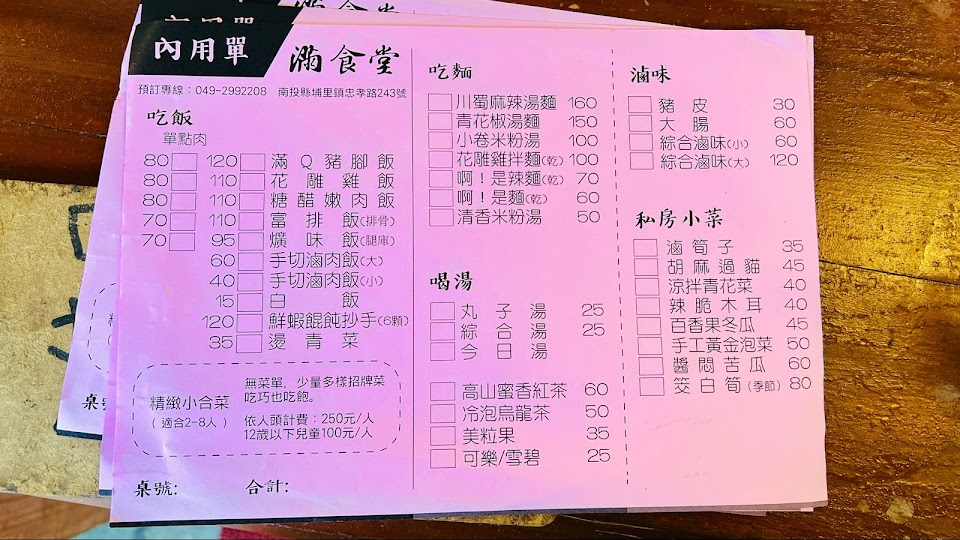 內用單 滿食堂
預訂專線：049-2992208 南投縣埔里鎮忠孝路243號
吃飯
單點肉
80 120 滿Q豬腳飯
80 110 花雕雞飯
80 110 糖醋嫩肉飯
70 110 富排飯(排骨)
70 95 爌味飯(腿庫)
60 手切滷肉飯(大)
40 手切滷肉飯(小)
15 白飯
120 鮮蝦餛飩抄手(6顆)
35 燙青菜
精緻小合菜
（適合2-8人）
無菜單，少量多樣招牌菜
吃巧也吃飽。
依人頭計費：250元/人
12歲以下兒童100元/人
桌號： 合計：
吃麵
川蜀麻辣湯麵 160
青花椒湯麵 150
小卷米粉湯 100
花雕雞拌麵(乾) 100
啊！是辣麵(乾) 70
啊！是麵(乾) 60
清香米粉湯 50
喝湯
丸子湯 25
綜合湯 25
今日湯
高山蜜香紅茶 60
冷泡烏龍茶 50
美粒果 35
可樂/雪碧 25
滷味
豬皮 30
大腸 60
綜合滷味(小) 60
綜合滷味(大) 120
私房小菜
滷筍子 35
胡麻過貓 45
涼拌青花菜 40
辣脆木耳 40
百香果冬瓜 45
手工黃金泡菜 50
醬悶苦瓜 60
筊白筍(季節) 80
桌號